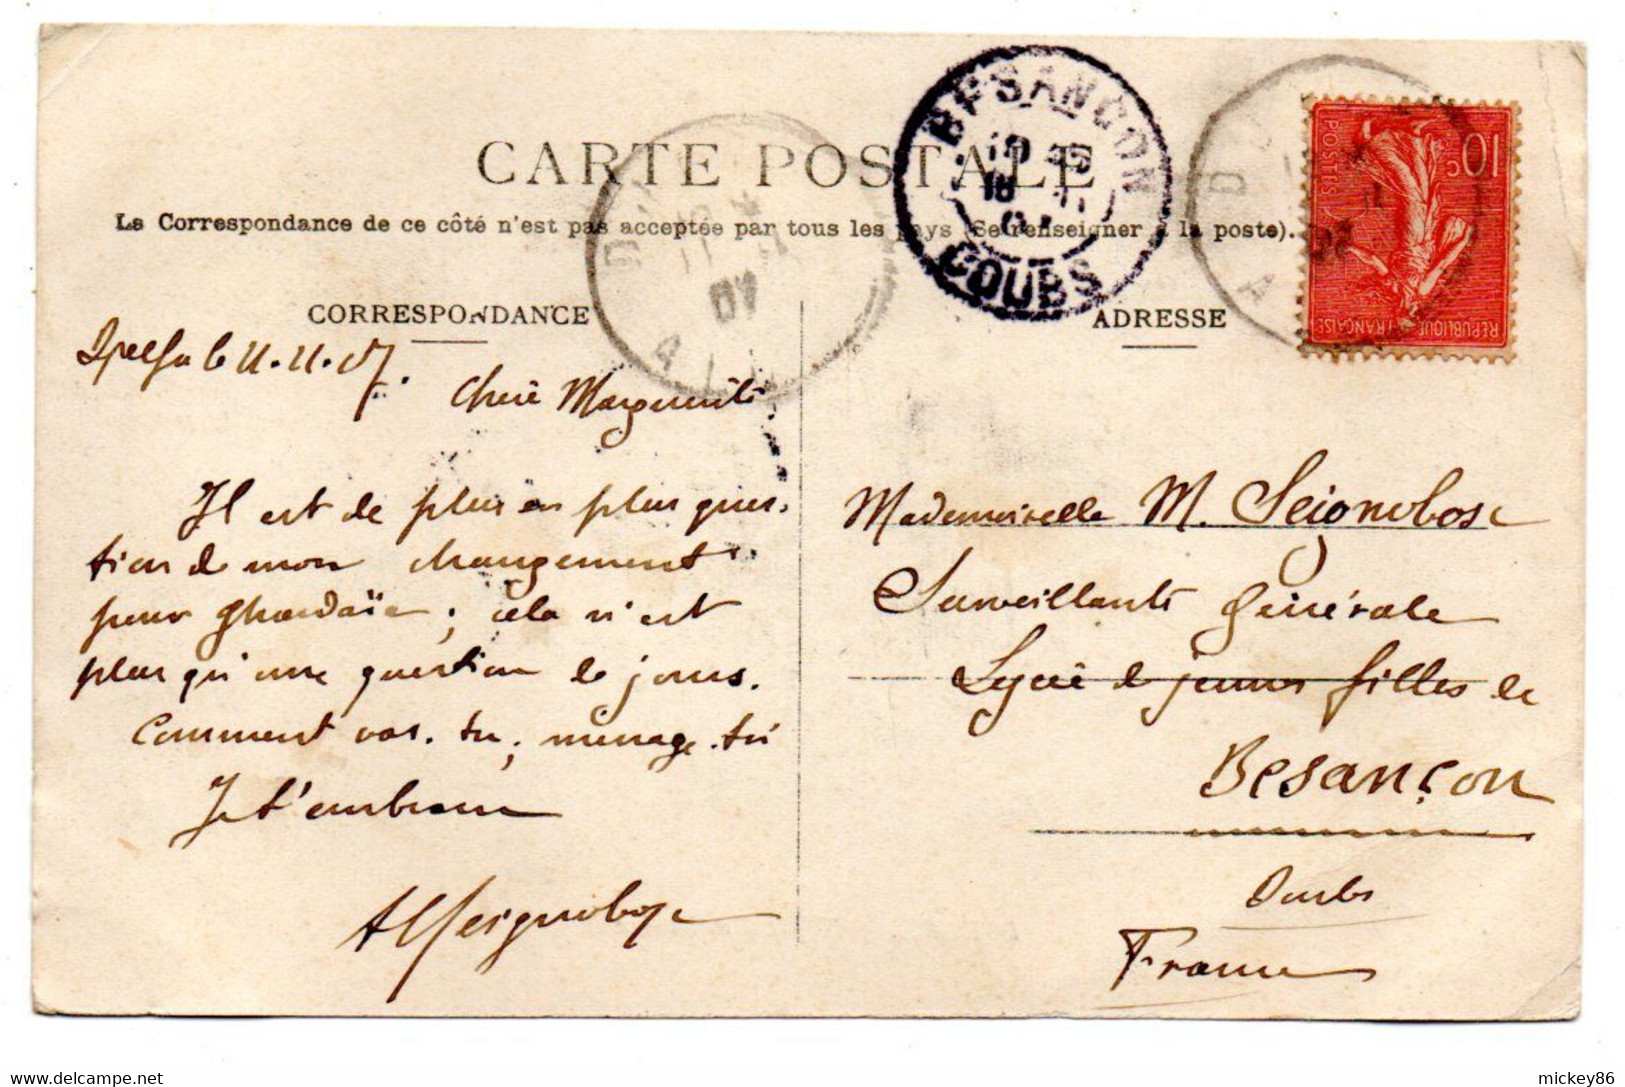 CARTE POSTALE
La Correspondance de ce côté n'est pas acceptée par tous les pays (Se renseigner à la poste).
CORRESPONDANCE
Djelfa le 11.11.07.
Chère Marguerite.
Il est de plus en plus ques-
tion de mon changement
pour Ghardaïa; cela n'est
plus qu'une question de jours.
Comment vas-tu; ménage-toi
Je t'embrasse
A Seignobosc
ADRESSE
Mademoiselle M. Seignobosc
Surveillante Générale
Lycée de jeunes filles de
Besançon
Doubs
France
BESANCON
DOUBS
07
10c
POSTES
REPUBLIQUE FRANÇAISE
mickey86